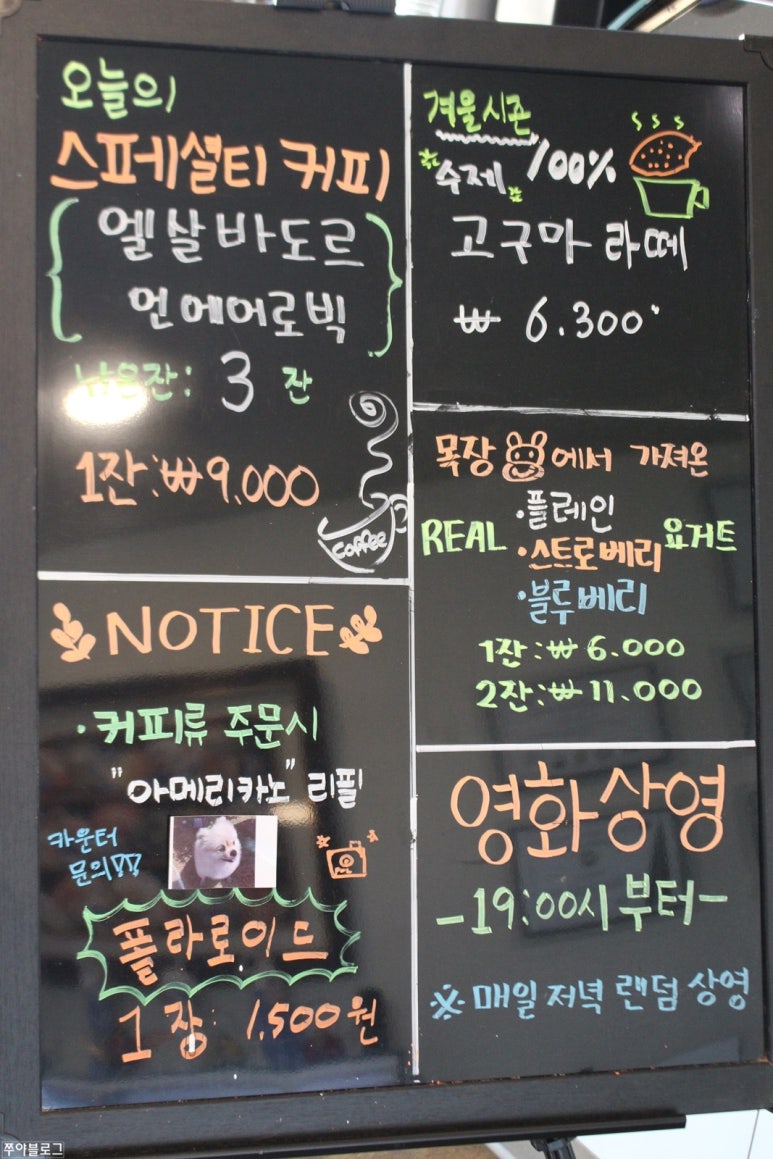 오늘의
스페셜티 커피
엘살바도르
언에어로빅
남은잔: 3 잔
1잔:₩9,000
coffee
NOTICE
·커피류 주문시
"아메리카노" 리필
카운터
문의!!
폴라로이드
1장: 1,500원
겨울시즌
수제 100%
고구마 라떼
₩ 6.300
목장에서 가져온
·플레인
REAL ·스트로베리 요거트
·블루베리
1잔:₩ 6.000
2잔:₩ 11.000
영화상영
-19:00시 부터-
※ 매일 저녁 랜덤 상영
쭈야블로그